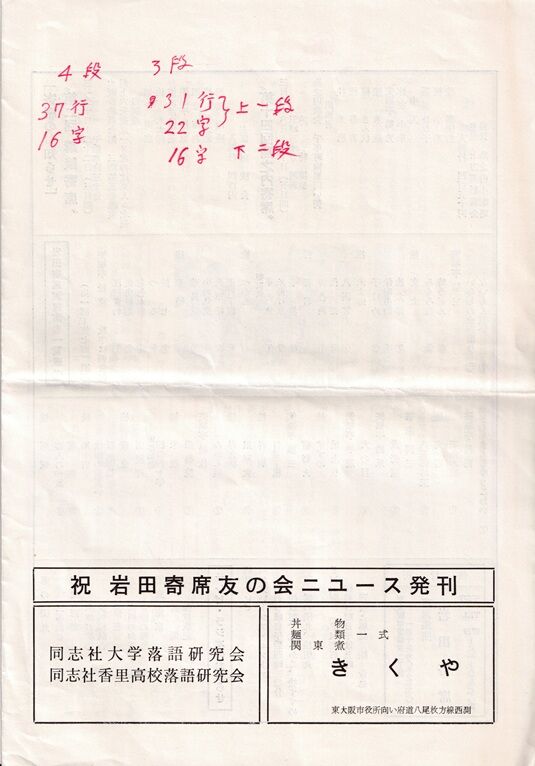 4段
37行
16字
3段
31行
22字
上一段
16字 下二段
祝 岩田寄席友の会ニュース発刊
同志社大学落語研究会
同志社香里高校落語研究会
丼物
麺類一式
関東煮
きくや
東大阪市役所向い府道八尾枚方線西側